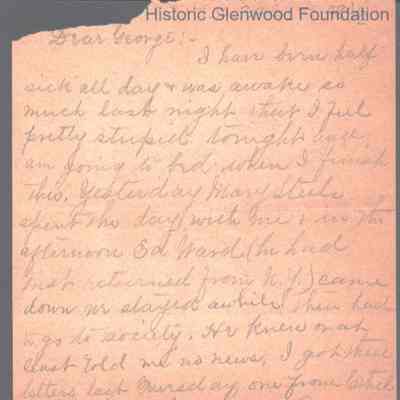 Historic Glenwood Foundation
Dear George:-
I have been half
sick all day & was awake so
much last night that I feel
pretty stupid tonight and
am going to bed when I finish
this. Yesterday Mary Steele
spent the day with me & in the
afternoon Ed Ward (he had
just returned from N.Y.) came
down we stayed awhile then had
to go to society. He knew or at
least told me no news. I got three
letters last Thursday one from